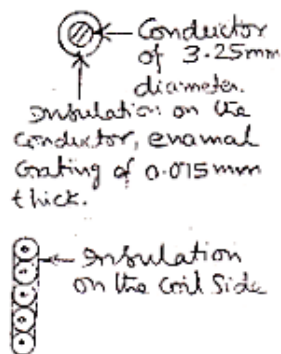 Conductor
of 3.25mm
diameter.
Insulation on the
Conductor, enamal
Grating of 0.015mm
thick.
Insulation
on the Coil Side